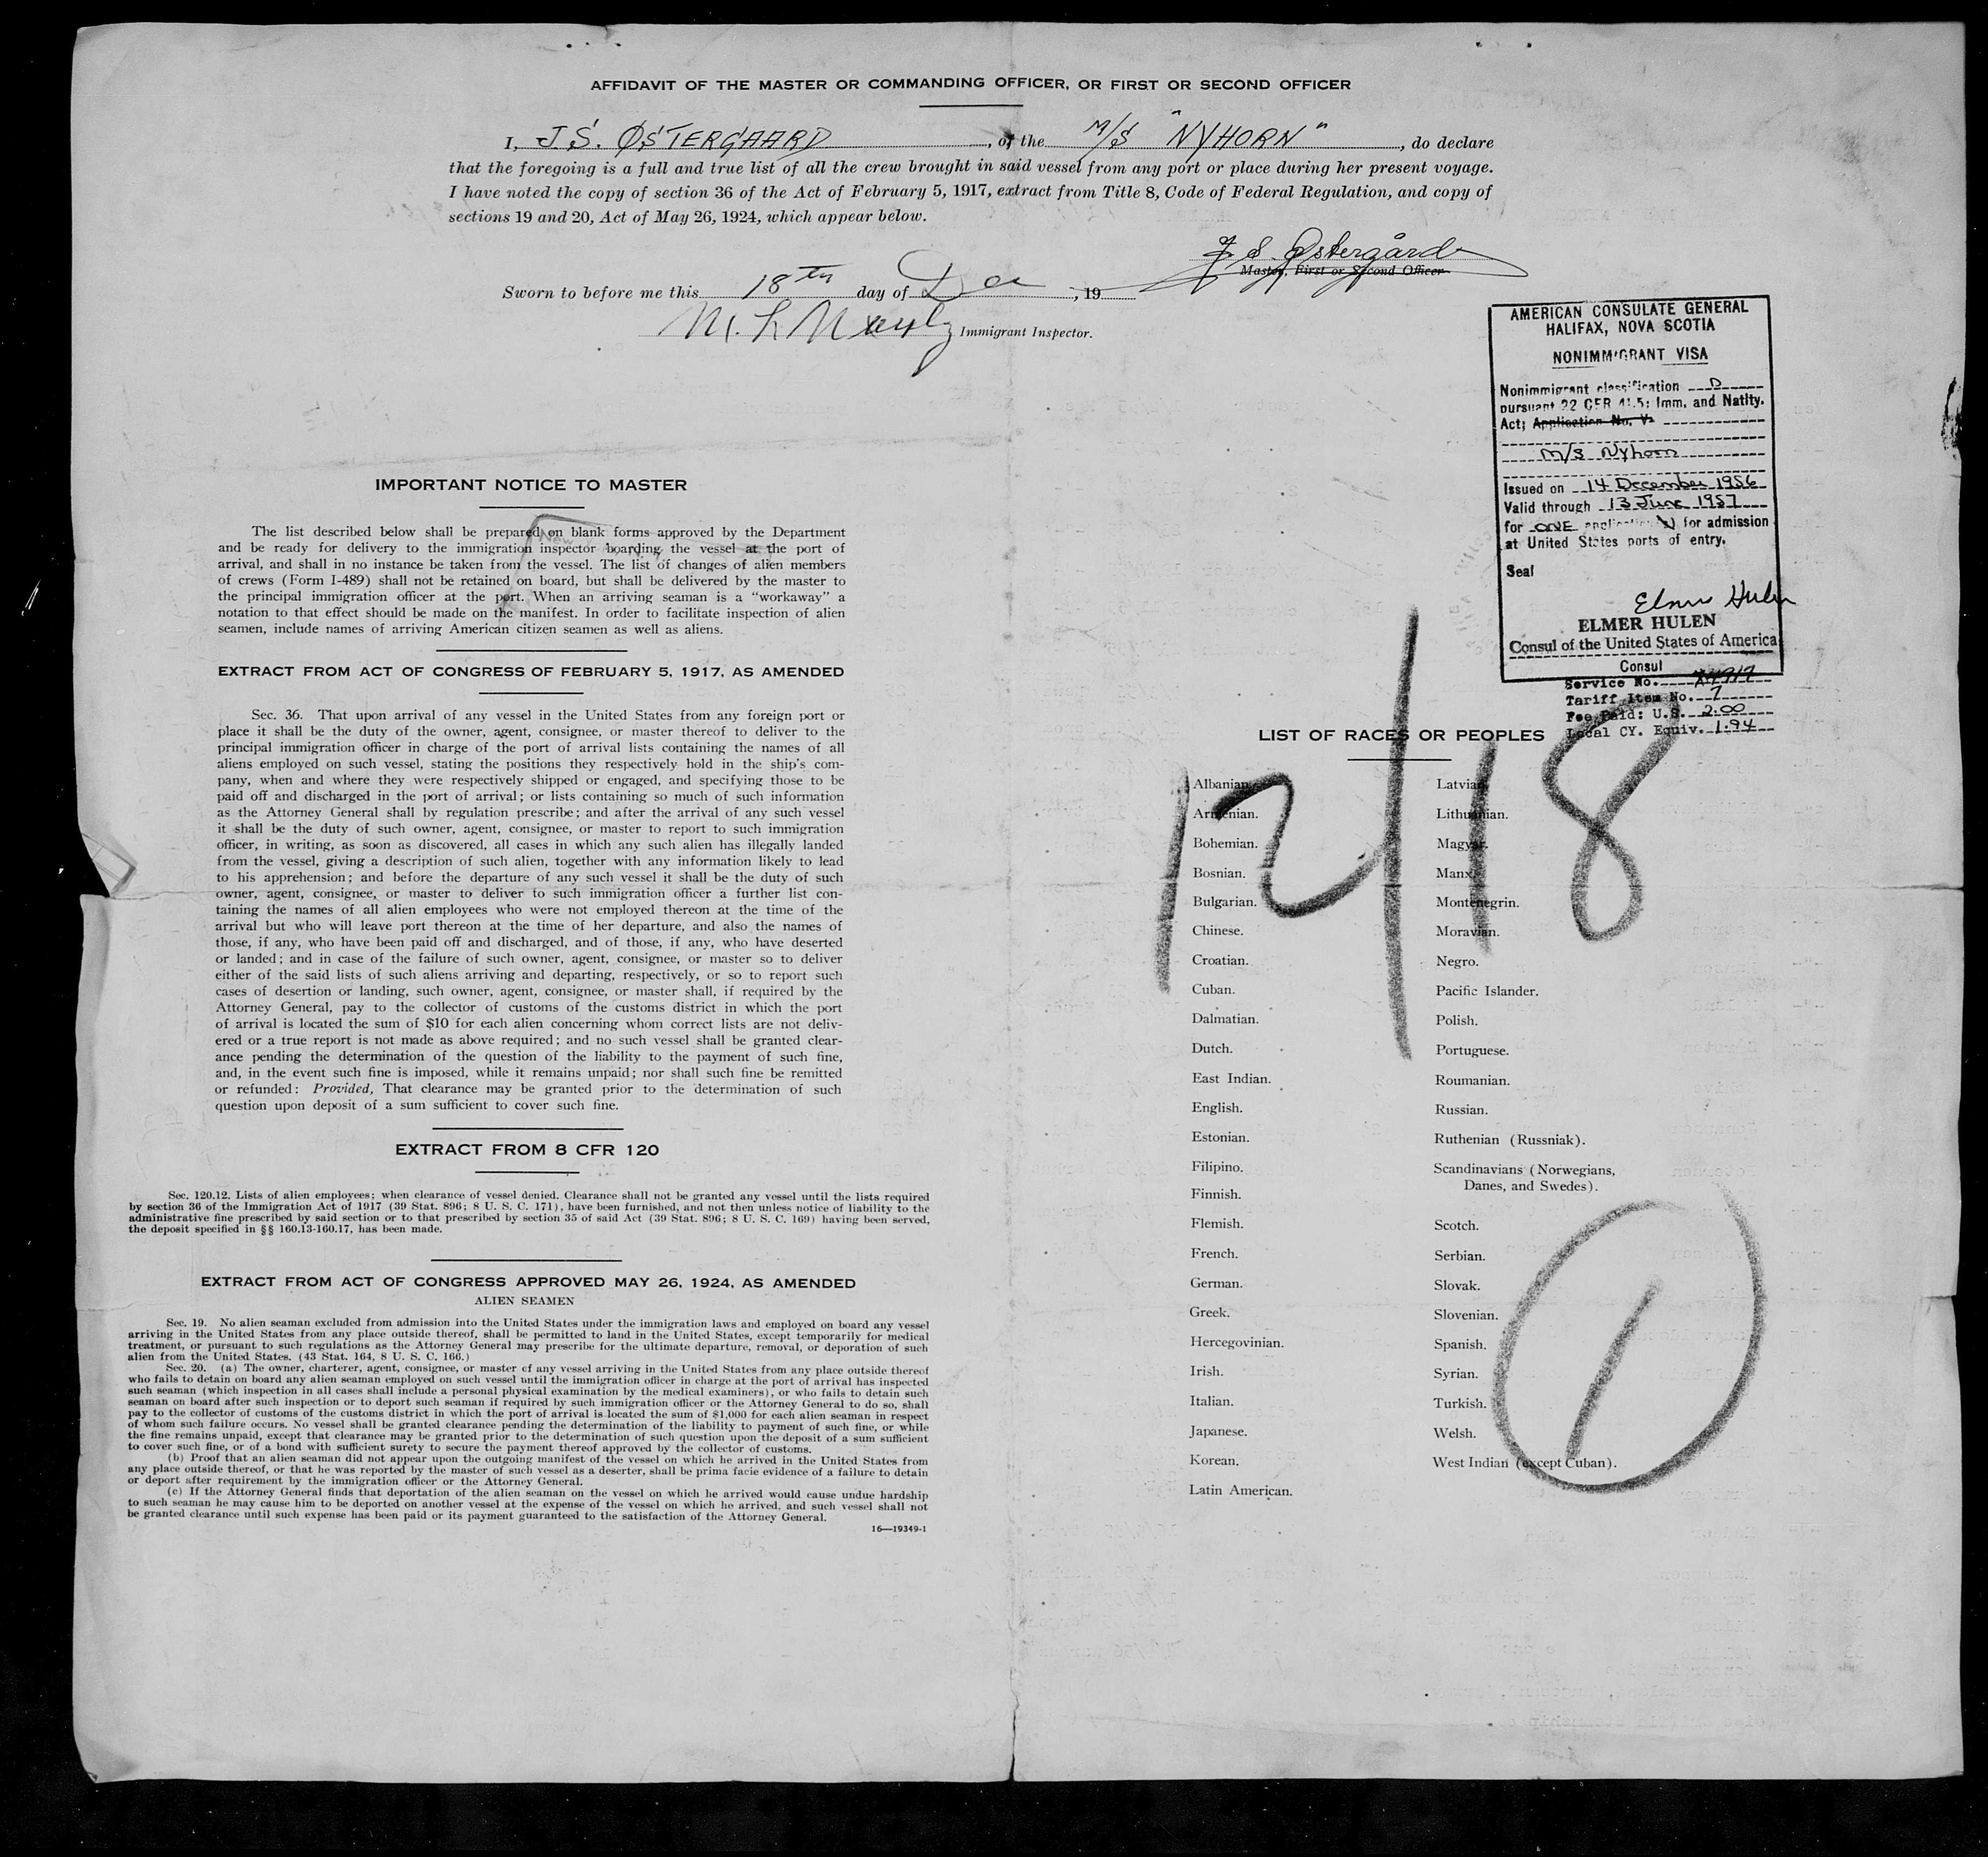 AFFIDAVIT OF THE MASTER OR COMMANDING OFFICER, OR FIRST OR SECOND OFFICER
I, J.S. ØSTERGAARD, of the M/S "NYHORN", do declare
that the foregoing is a full and true list of all the crew brought in said vessel from any port or place during her present voyage.
I have noted the copy of section 36 of the Act of February 5, 1917, extract from Title 8, Code of Federal Regulation, and copy of
sections 19 and 20, Act of May 26, 1924, which appear below.
J. S. Østergård
Master, First or Second Officer
Sworn to before me this 18th day of Dec, 19
M. L. Immigrant Inspector.
AMERICAN CONSULATE GENERAL
HALIFAX, NOVA SCOTIA
NONIMMIGRANT VISA
Nonimmigrant classification D
pursuant 22 CFR 41.5; Imm. and Natlty.
Act; Application No. V-
M/S Nyhorn
Issued on 14 December 1956
Valid through 13 June 1957
for ONE application for admission
at United States ports of entry.
Seal
Elmer Hulen
ELMER HULEN
Consul of the United States of America
Consul
Service No.
Tariff Item No. 7
Fee Paid: U.S. 2.00
Local CY. Equiv. 1.94
IMPORTANT NOTICE TO MASTER
The list described below shall be prepared on blank forms approved by the Department
and be ready for delivery to the immigration inspector boarding the vessel at the port of
arrival, and shall in no instance be taken from the vessel. The list of changes of alien members
of crews (Form I-489) shall not be retained on board, but shall be delivered by the master to
the principal immigration officer at the port. When an arriving seaman is a "workaway" a
notation to that effect should be made on the manifest. In order to facilitate inspection of alien
seamen, include names of arriving American citizen seamen as well as aliens.
EXTRACT FROM ACT OF CONGRESS OF FEBRUARY 5, 1917, AS AMENDED
Sec. 36. That upon arrival of any vessel in the United States from any foreign port or
place it shall be the duty of the owner, agent, consignee, or master thereof to deliver to the
principal immigration officer in charge of the port of arrival lists containing the names of all
aliens employed on such vessel, stating the positions they respectively hold in the ship's com-
pany, when and where they were respectively shipped or engaged, and specifying those to be
paid off and discharged in the port of arrival; or lists containing so much of such information
as the Attorney General shall by regulation prescribe; and after the arrival of any such vessel
it shall be the duty of such owner, agent, consignee, or master to report to such immigration
officer, in writing, as soon as discovered, all cases in which any such alien has illegally landed
from the vessel, giving a description of such alien, together with any information likely to lead
to his apprehension; and before the departure of any such vessel it shall be the duty of such
owner, agent, consignee, or master to deliver to such immigration officer a further list con-
taining the names of all alien employees who were not employed thereon at the time of the
arrival but who will leave port thereon at the time of her departure, and also the names of
those, if any, who have been paid off and discharged, and of those, if any, who have deserted
or landed; and in case of the failure of such owner, agent, consignee, or master so to deliver
either of the said lists of such aliens arriving and departing, respectively, or so to report such
cases of desertion or landing, such owner, agent, consignee, or master shall, if required by the
Attorney General, pay to the collector of customs of the customs district in which the port
of arrival is located the sum of $10 for each alien concerning whom correct lists are not deliv-
ered or a true report is not made as above required; and no such vessel shall be granted clear-
ance pending the determination of the question of the liability to the payment of such fine,
and, in the event such fine is imposed, while it remains unpaid; nor shall such fine be remitted
or refunded: Provided, That clearance may be granted prior to the determination of such
question upon deposit of a sum sufficient to cover such fine.
EXTRACT FROM 8 CFR 120
Sec. 120.12. Lists of alien employees; when clearance of vessel denied. Clearance shall not be granted any vessel until the lists required
by section 36 of the Immigration Act of 1917 (39 Stat. 896; 8 U. S. C. 171), have been furnished, and not then unless notice of liability to the
administrative fine prescribed by said section or to that prescribed by section 35 of said Act (39 Stat. 896; 8 U. S. C. 169) having been served,
the deposit specified in §§ 160.13-160.17, has been made.
EXTRACT FROM ACT OF CONGRESS APPROVED MAY 26, 1924, AS AMENDED
ALIEN SEAMEN
Sec. 19. No alien seaman excluded from admission into the United States under the immigration laws and employed on board any vessel
arriving in the United States from any place outside thereof, shall be permitted to land in the United States, except temporarily for medical
treatment, or pursuant to such regulations as the Attorney General may prescribe for the ultimate departure, removal, or deporation of such
alien from the United States. (43 Stat. 164, 8 U. S. C. 166.)
Sec. 20. (a) The owner, charterer, agent, consignee, or master of any vessel arriving in the United States from any place outside thereof
who fails to detain on board any alien seaman employed on such vessel until the immigration officer in charge at the port of arrival has inspected
such seaman (which inspection in all cases shall include a personal physical examination by the medical examiners), or who fails to detain such
seaman on board after such inspection or to deport such seaman if required by such immigration officer or the Attorney General to do so, shall
pay to the collector of customs of the customs district in which the port of arrival is located the sum of $1,000 for each alien seaman in respect
of whom such failure occurs. No vessel shall be granted clearance pending the determination of the liability to payment of such fine, or while
the fine remains unpaid, except that clearance may be granted prior to the determination of such question upon the deposit of a sum sufficient
to cover such fine, or of a bond with sufficient surety to secure the payment thereof approved by the collector of customs.
(b) Proof that an alien seaman did not appear upon the outgoing manifest of the vessel on which he arrived in the United States from
any place outside thereof, or that he was reported by the master of such vessel as a deserter, shall be prima facie evidence of a failure to detain
or deport after requirement by the immigration officer or the Attorney General.
(c) If the Attorney General finds that deportation of the alien seaman on the vessel on which he arrived would cause undue hardship
to such seaman he may cause him to be deported on another vessel at the expense of the vessel on which he arrived, and such vessel shall not
be granted clearance until such expense has been paid or its payment guaranteed to the satisfaction of the Attorney General.
16—19349-1
LIST OF RACES OR PEOPLES
Albanian.
Armenian.
Bohemian.
Bosnian.
Bulgarian.
Chinese.
Croatian.
Cuban.
Dalmatian.
Dutch.
East Indian.
English.
Estonian.
Filipino.
Finnish.
Flemish.
French.
German.
Greek.
Hercegovinian.
Irish.
Italian.
Japanese.
Korean.
Latin American.
Latvian.
Lithuanian.
Magyar.
Manx.
Montenegrin.
Moravian.
Negro.
Pacific Islander.
Polish.
Portuguese.
Roumanian.
Russian.
Ruthenian (Russniak).
Scandinavians (Norwegians,
Danes, and Swedes).
Scotch.
Serbian.
Slovak.
Slovenian.
Spanish.
Syrian.
Turkish.
Welsh.
West Indian (except Cuban).
12/18
1